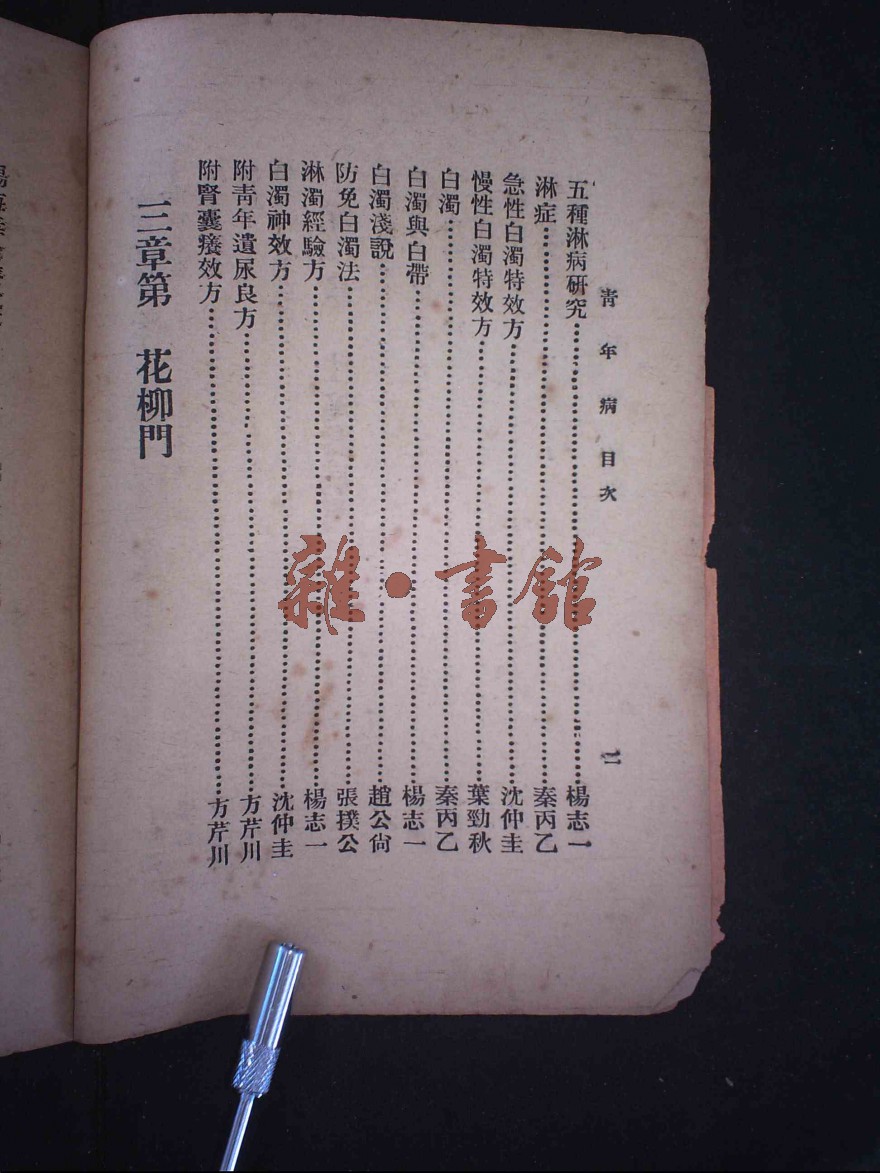 青年病目次
二
五種淋病研究……楊志一
淋症……秦丙乙
急性白濁特效方……沈仲圭
慢性白濁特效方……葉勁秋
白濁……秦丙乙
白濁與白帶……楊志一
白濁淺說……趙公尙
防免白濁法……張撲公
淋濁經驗方……楊志一
白濁神效方……沈仲圭
附靑年遺尿良方……方芹川
附腎囊癢效方……方芹川
三章第 花柳門
雜·書館